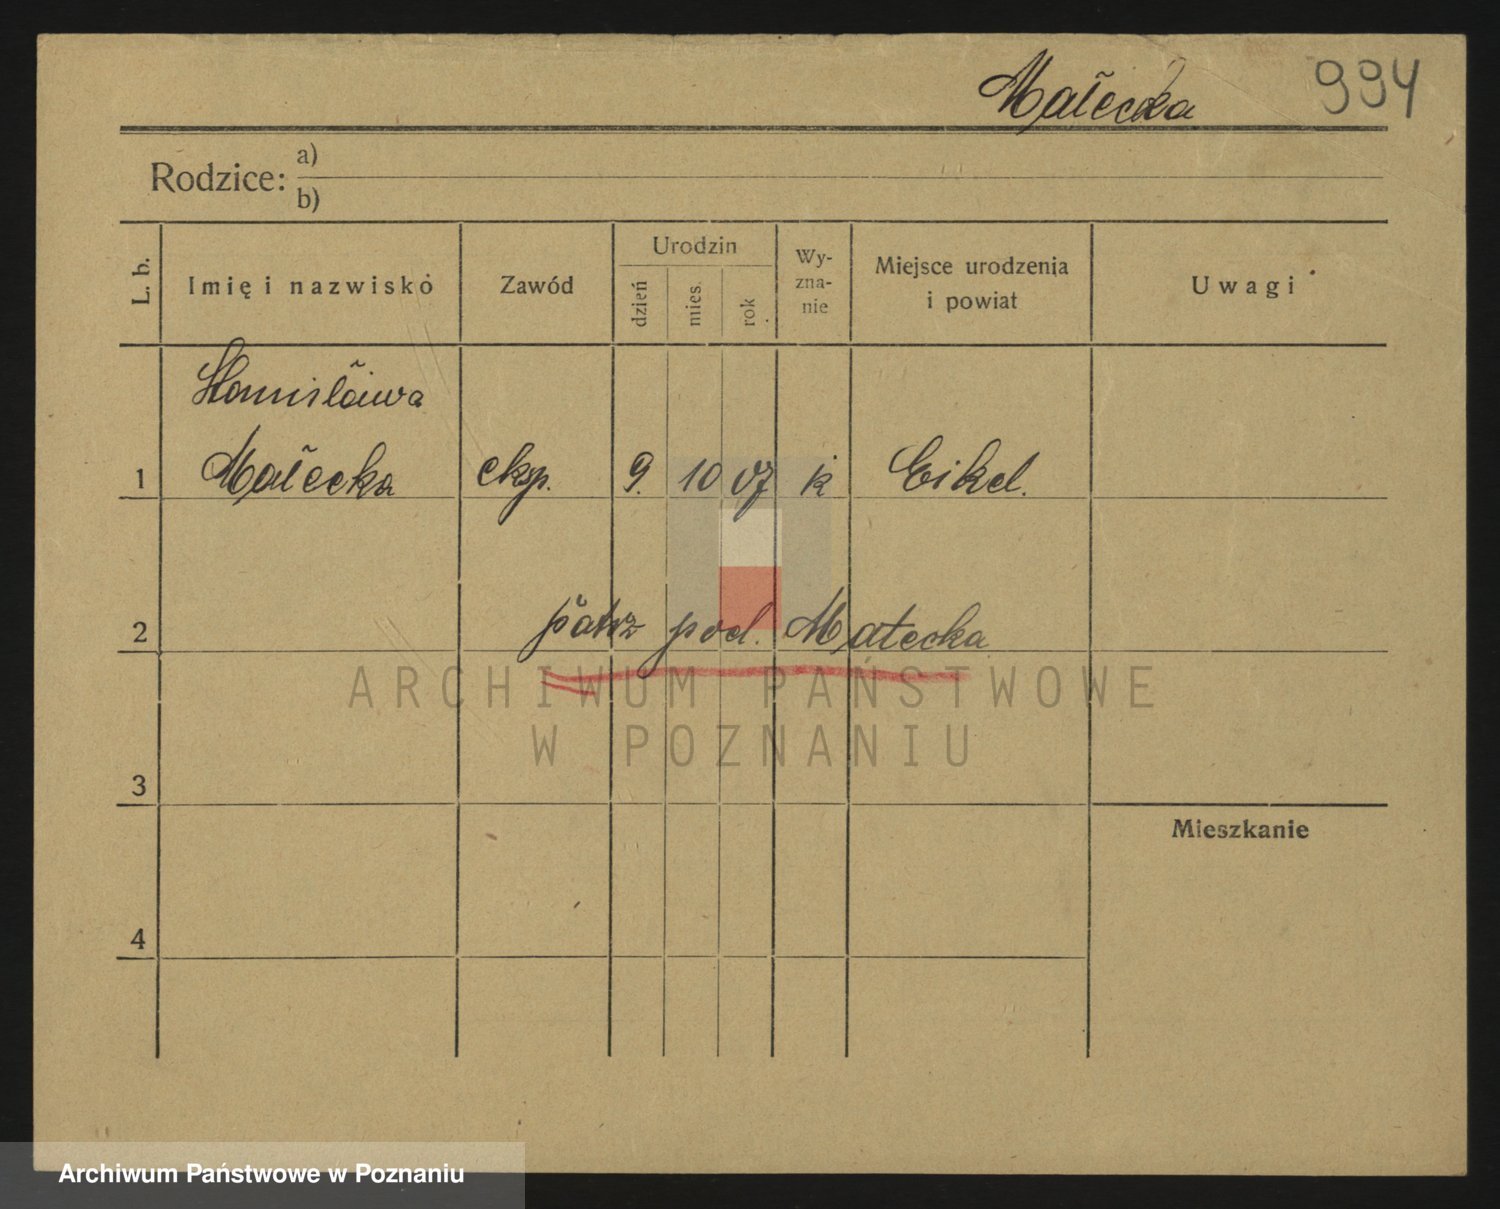 Małecka 994
Rodzice: a)
b)
L. b.
Imię i nazwisko
Zawód
Urodzin
dzień
mies.
rok
Wy-
zna-
nie
Miejsce urodzenia
i powiat
Uwagi
Stanisława
1 Małecka eksp. 9. 10 07 k Eikel.
2 patrz pod. Małecka
ARCHIWUM PAŃSTWOWE
W POZNANIU
3
Mieszkanie
4
Archiwum Państwowe w Poznaniu